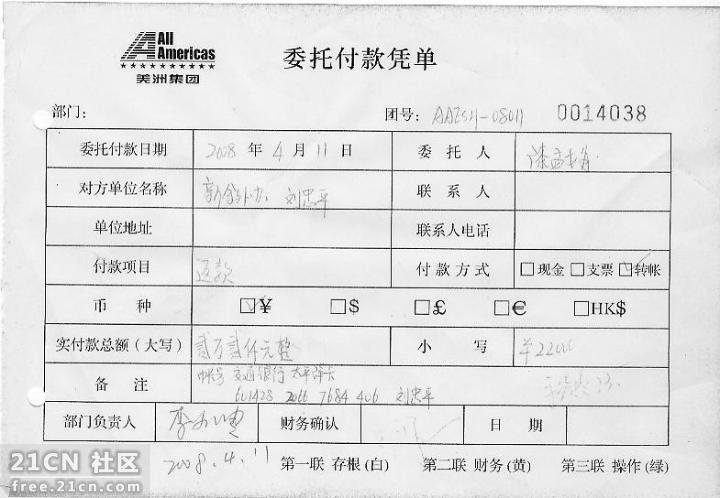 All
Americas
美洲集团
委托付款凭单
部门: 团号: 0014038
委托付款日期 2008 年 4 月 11 日 委托人
对方单位名称 刘忠平 联系人
单位地址 联系人电话
付款项目 返款 付款方式 □现金 □支票 ☑转帐
币种 ☑¥ □$ □£ □€ □HK$
实付款总额(大写) 贰万贰仟元整 小写 ¥22000
备注 帐号 交通银行 太平洋卡
601428 2066 7684 406 刘忠平
部门负责人 财务确认 日期
2008.4.11 第一联 存根(白) 第二联 财务(黄) 第三联 操作(绿)
21CN 社区
free.21cn.com